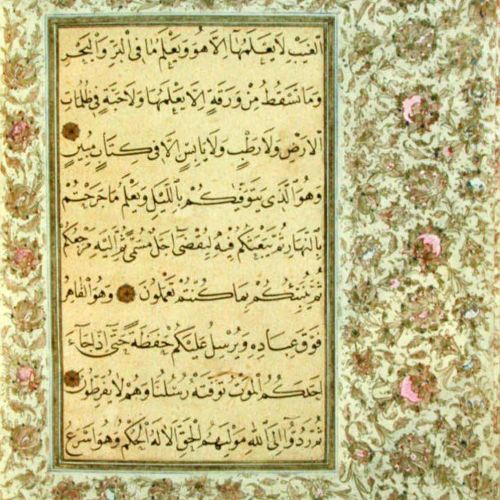 الغيب لا يعلمها الا هو ويعلم ما في البر والبحر
وما تسقط من ورقة الا يعلمها ولا حبة في ظلمات
الارض ولا رطب ولا يابس الا في كتاب مبين
وهو الذي يتوفيكم بالليل ويعلم ما جرحتم
بالنهار ثم يبعثكم فيه ليقضى اجل مسمى ثم اليه مرجعكم
ثم ينبئكم بما كنتم تعملون وهو القاهر
فوق عباده ويرسل عليكم حفظة حتى اذا جاء
احدكم الموت توفته رسلنا وهم لا يفرطون
ثم ردوا الى الله موليهم الحق الا له الحكم وهو اسرع